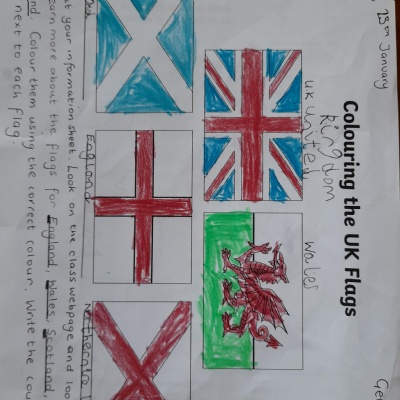 January
Colouring the UK Flags
Kingdom
uk united
Wales
England
at your information sheet. Look on the class webpage and loo
earn more about the flags for England, Wales, Scotland,
nd. Colour them using the correct colour. Write the cou
next to each flag.